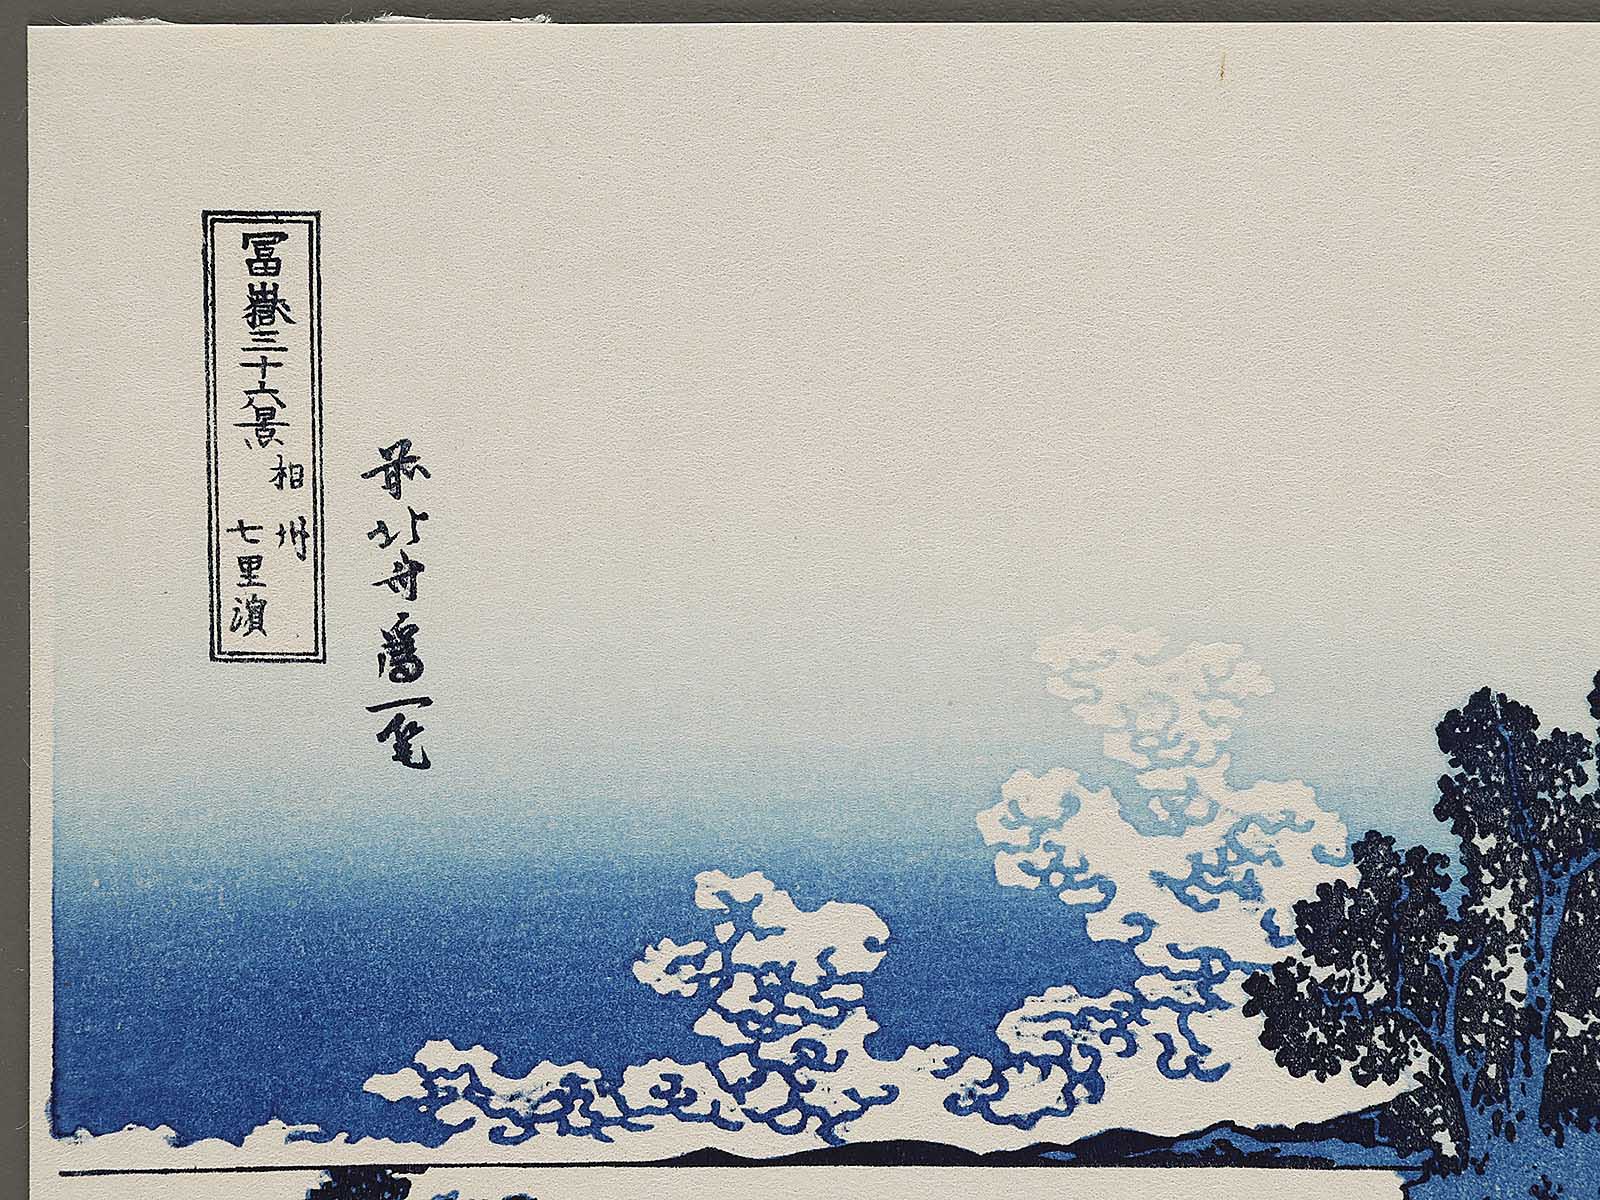 冨嶽三十六景
相州
七里濵
前北斎爲一筆